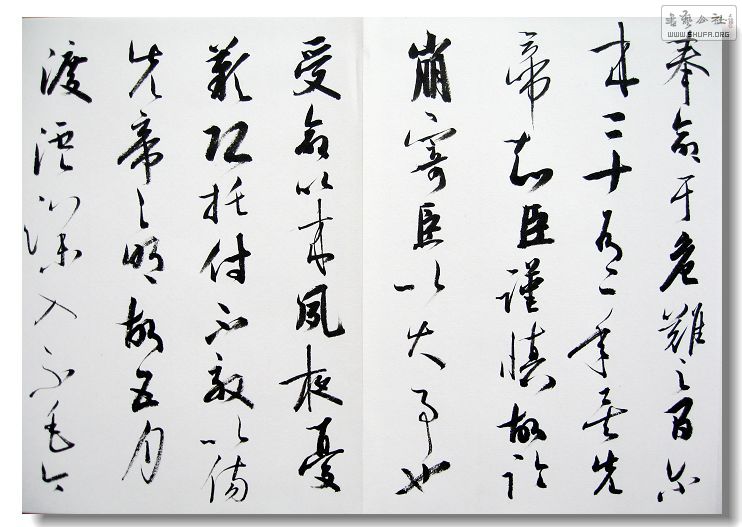 奉命于危難之間尔
来二十有一年矣先
帝知臣謹慎故臨
崩寄臣以大事也
受命以来夙夜憂
歎恐托付不效以傷
先帝之明故五月
渡瀘深入不毛今
书艺公社
WWW.SHUFA.ORG